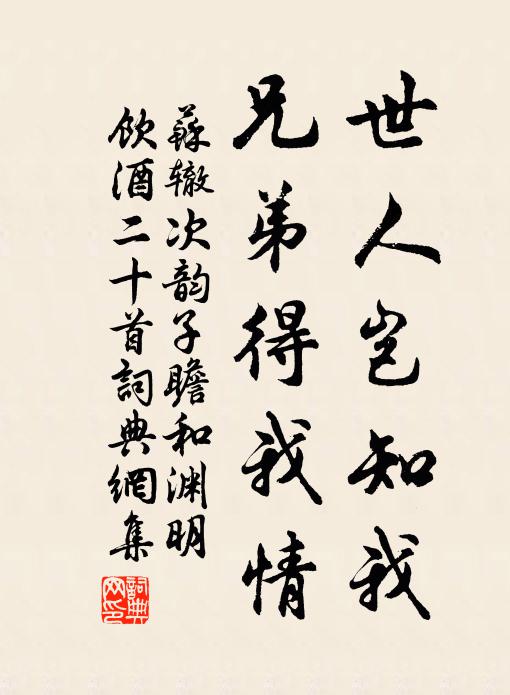 世人岂知我
兄弟得我情
蘇辙次韵子瞻和渊明
飲酒二十首詞典網集
詞典网印